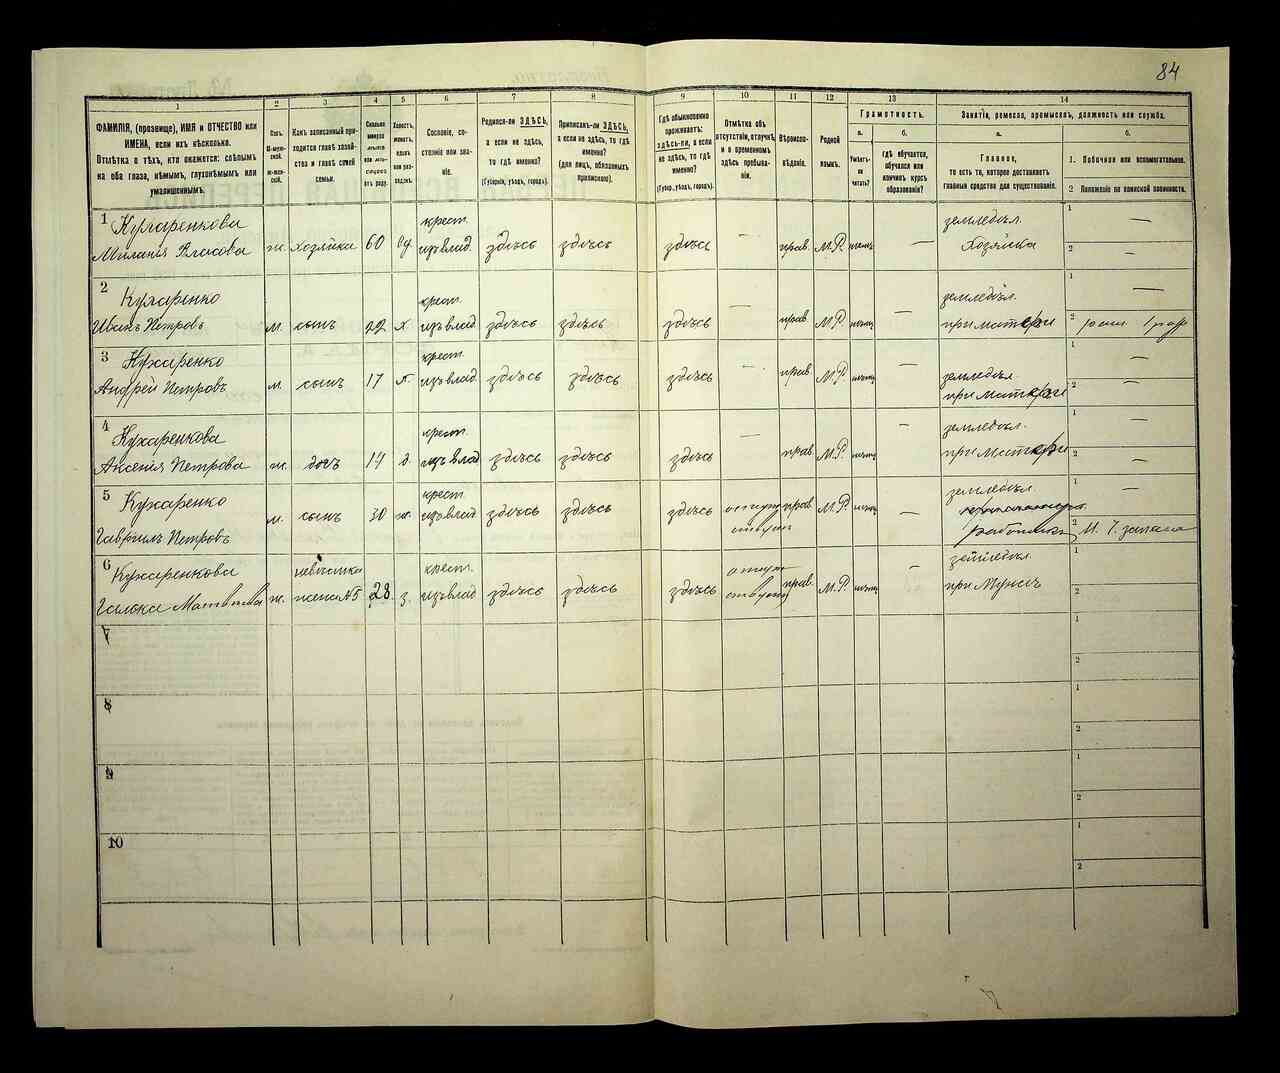 84
1 2 3 4 5 6 7 8 9 10 11 12 13 14
ФАМИЛІЯ, (прозвище), ИМЯ и ОТЧЕСТВО или ИМЕНА, если ихъ нѣсколько.
Отмѣтка о тѣхъ, кто окажется: слѣпымъ на оба глаза, нѣмымъ, глухонѣмымъ или умалишеннымъ.
Полъ. М-мужской. Ж-женскій.
Какъ записанный приходится главѣ хозяйства и главѣ своей семьи.
Сколько минуло лѣтъ или мѣсяцевъ отъ роду.
Холостъ, женатъ, вдовъ или разведенъ.
Сословіе, состояніе или званіе.
Родился-ли ЗДѢСЬ, а если не здѣсь, то гдѣ именно?
(Губернія, уѣздъ, городъ).
Приписанъ-ли ЗДѢСЬ, а если не здѣсь, то гдѣ именно?
(Для лицъ, обязанныхъ припискою).
Гдѣ обыкновенно проживаетъ: здѣсь-ли, а если не здѣсь, то гдѣ именно?
(Губер., уѣздъ, городъ).
Отмѣтка объ отсутствіи, отлучкѣ, и о временномъ здѣсь пребываніи.
Вѣроисповѣданіе.
Родной языкъ.
Грамотность.
а. Умѣетъ-ли читать?
б. гдѣ обучается, обучался или кончилъ курсъ образованія?
Занятіе, ремесло, промыселъ, должность или служба.
а. Главное, то есть то, которое доставляетъ главныя средства для существованія.
б. 1. Побочное или вспомогательное.
2 Положеніе по воинской повинности.
1 Кухаренкова крест. земледѣл. 1 —
Миланія Власова ж. Хозяйка 60 вд. изъ влад. здѣсь здѣсь здѣсь — прав. М.Р. — Хозяйка 2 —
2 Кухаренко крест. земледѣл. 1 —
Иванъ Петровъ м. сынъ 22 х. изъ влад. здѣсь здѣсь здѣсь — прав. М.Р. — при матери 2
3 Кухаренко крест. 1 —
Андрей Петровъ м. сынъ 17 х. изъ влад. здѣсь здѣсь здѣсь — прав. М.Р. — земледѣл. при матери 2 —
4 Кухаренкова крест. земледѣл. 1 —
Аксенія Петрова ж. дочь 14 д. изъ влад здѣсь здѣсь здѣсь — прав. М.Р. — при матери 2 —
5 Кухаренко крест. земледѣл. 1 —
Гаврилъ Петровъ м. сынъ 30 ж. изъ влад. здѣсь здѣсь здѣсь отсутствуетъ прав. М.Р. — работникъ 2 И. 1. запаса
6 Кухаренкова невѣстка крест. земледѣл. 1
Матвѣева ж. жена №5 28. з. изъ влад здѣсь здѣсь здѣсь отсутствуетъ прав. М.Р. — при Мужѣ 2
7 1
2
8 1
2
9 1
2
10 1
2